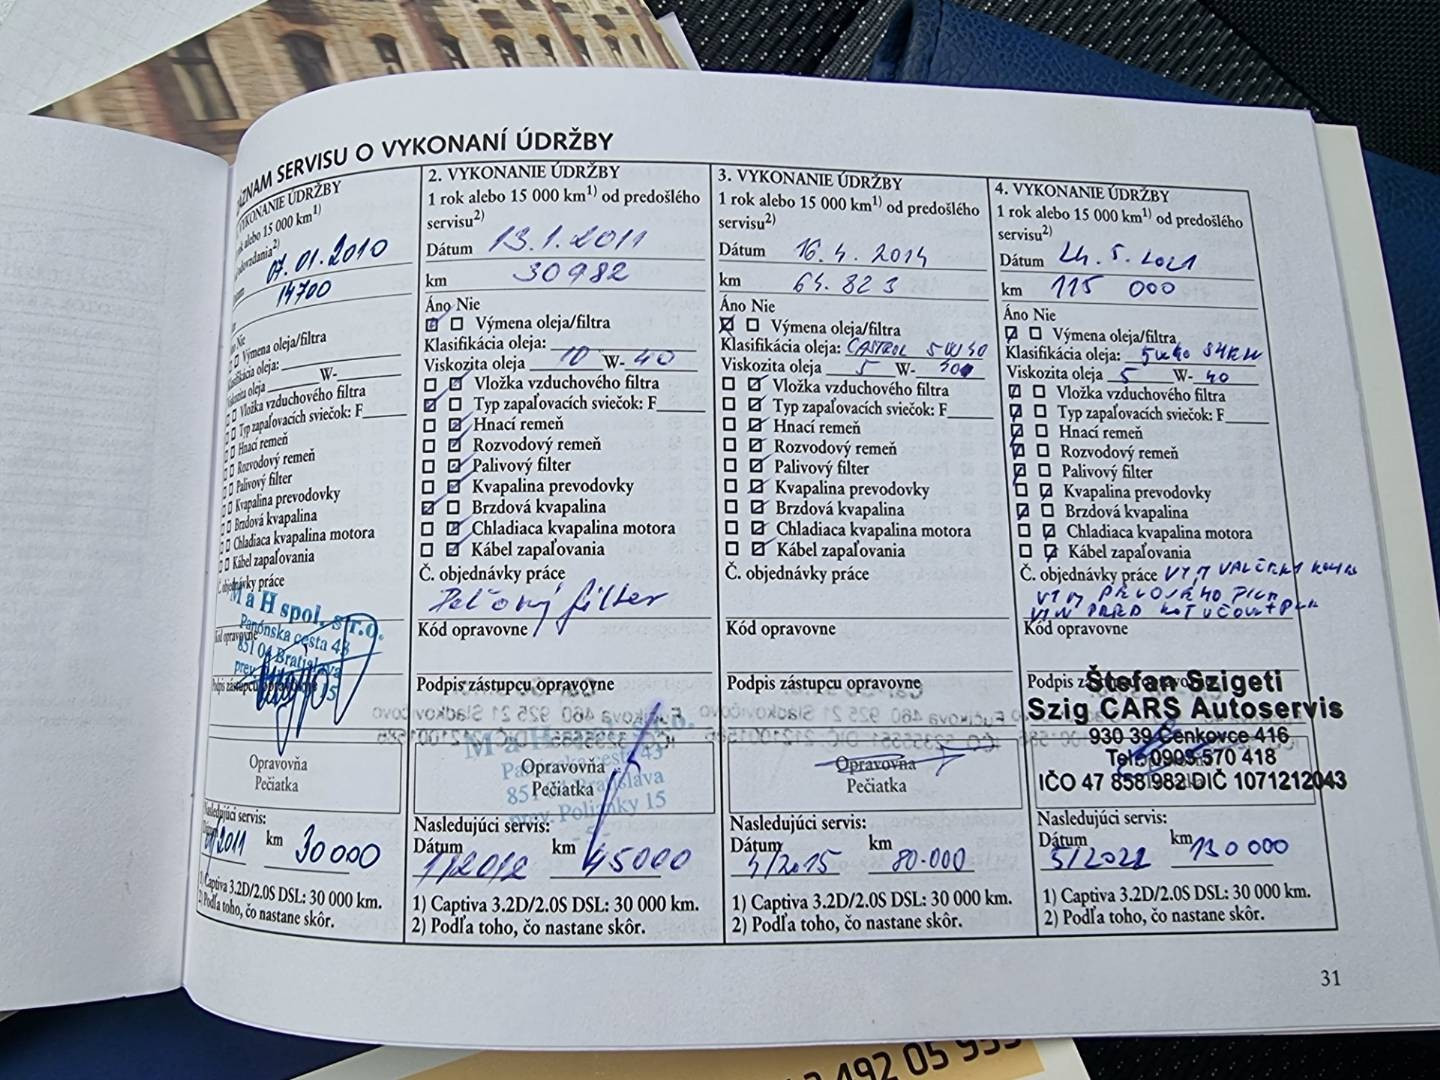 ZNAM SERVISU O VYKONANÍ ÚDRŽBY
VYKONANIE ÚDRŽBY
rok alebo 15 000 km1)
07.01.2010
14700
Nie
Výmena oleja/filtra
Klasifikácia oleja:
Viskozita oleja W-
Vložka vzduchového filtra
Typ zapaľovacích sviečok: F
Hnací remeň
Rozvodový remeň
Palivový filter
Kvapalina prevodovky
Brzdová kvapalina
Chladiaca kvapalina motora
Kábel zapaľovania
Č. objednávky práce
M a H spol. s r.o.
Panónska cesta 43
851 04 Bratislava
Kód opravovne
Podpis zástupcu opravovne 15
Opravovňa
Pečiatka
Nasledujúci servis:
2011 km 30000
1) Captiva 3.2D/2.0S DSL: 30 000 km.
2) Podľa toho, čo nastane skôr.
2. VYKONANIE ÚDRŽBY
1 rok alebo 15 000 km1) od predošlého
servisu2)
Dátum 13.1.2011
km 30982
Áno Nie
Výmena oleja/filtra
Klasifikácia oleja:
Viskozita oleja 10 W- 40
Vložka vzduchového filtra
Typ zapaľovacích sviečok: F
Hnací remeň
Rozvodový remeň
Palivový filter
Kvapalina prevodovky
Brzdová kvapalina
Chladiaca kvapalina motora
Kábel zapaľovania
Č. objednávky práce
Peľový filter
Kód opravovne
Podpis zástupcu opravovne
M a H
Panónska cesta 43
Opravovňa
851 Bratislava
Pečiatka
prev. Polianky 15
Nasledujúci servis:
Dátum km
1/2012 45000
1) Captiva 3.2D/2.0S DSL: 30 000 km.
2) Podľa toho, čo nastane skôr.
3. VYKONANIE ÚDRŽBY
1 rok alebo 15 000 km1) od predošlého
servisu2)
Dátum 16.4.2014
km 64.823
Áno Nie
Výmena oleja/filtra
Klasifikácia oleja: CASTROL 5W40
Viskozita oleja 5 W-
Vložka vzduchového filtra
Typ zapaľovacích sviečok: F
Hnací remeň
Rozvodový remeň
Palivový filter
Kvapalina prevodovky
Brzdová kvapalina
Chladiaca kvapalina motora
Kábel zapaľovania
Č. objednávky práce
Kód opravovne
Podpis zástupcu opravovne
Opravovňa
Pečiatka
Nasledujúci servis:
Dátum km
4/2015 80.000
1) Captiva 3.2D/2.0S DSL: 30 000 km.
2) Podľa toho, čo nastane skôr.
4. VYKONANIE ÚDRŽBY
1 rok alebo 15 000 km1) od predošlého
servisu2)
Dátum 24.5.2021
km 115 000
Áno Nie
Výmena oleja/filtra
Klasifikácia oleja: 5W40
Viskozita oleja 5 W- 40
Vložka vzduchového filtra
Typ zapaľovacích sviečok: F
Hnací remeň
Rozvodový remeň
Palivový filter
Kvapalina prevodovky
Brzdová kvapalina
Chladiaca kvapalina motora
Kábel zapaľovania
Č. objednávky práce VYM
VYM
PRED
Kód opravovne
Štefan Szigeti
Szig CARS Autoservis
930 39 Čenkovce 416
Tel.: 0905 570 418
IČO 47 858 982 DIČ 1071212043
Nasledujúci servis:
Dátum km 130 000
5/2022
1) Captiva 3.2D/2.0S DSL: 30 000 km.
2) Podľa toho, čo nastane skôr.
31
492 05 953